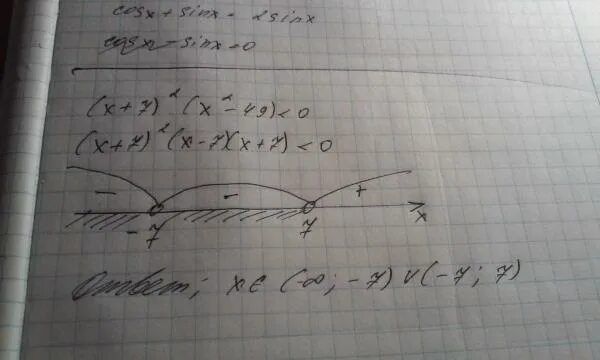 cosx + sinx = 2sinx
cosx - sinx = 0
(x+7)² (x² - 49) < 0
(x+7)² (x-7)(x+7) < 0
- - +
-7 7 x
Ответ; x ∈ (-∞; -7) ∪ (-7; 7)